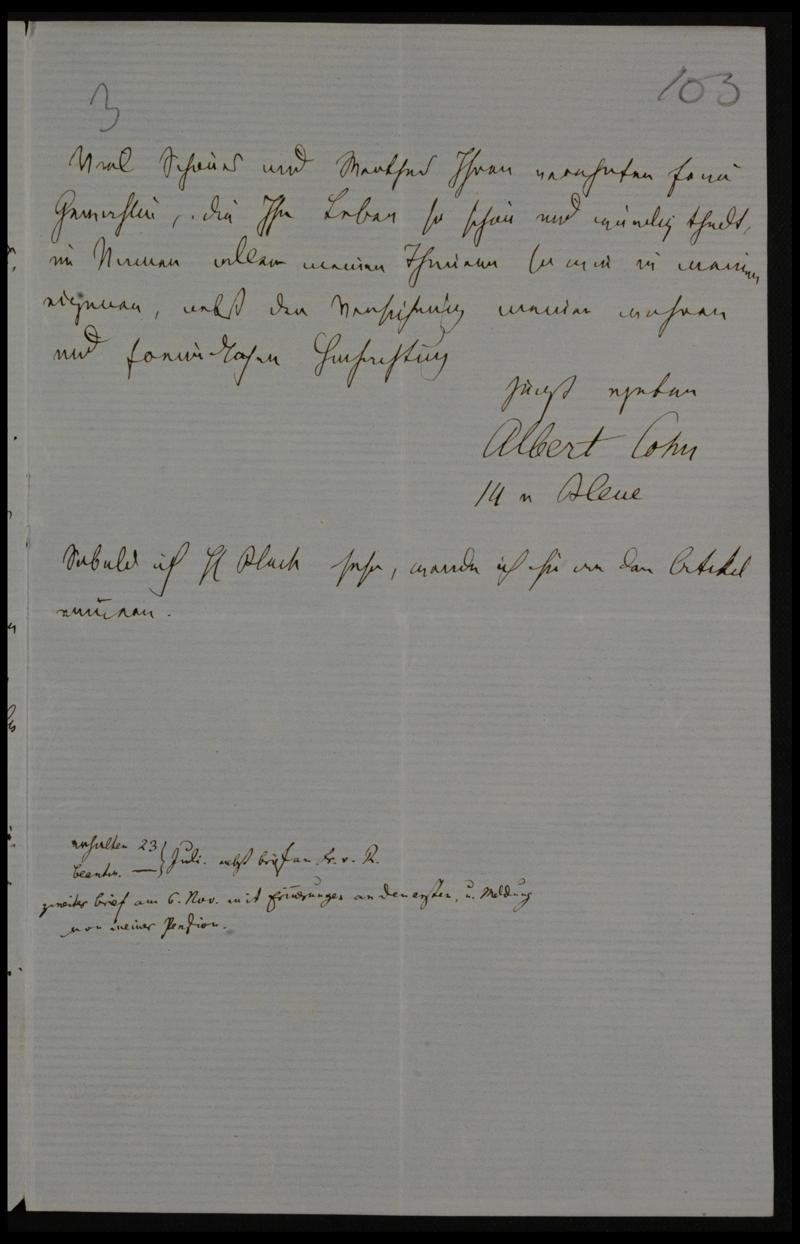 3
103
Viel Schönes und Werthes Ihrer verehrten Frau
Gemahlin, die Ihr Leben so schön und würdig theilt,
im Namen aller meiner Theuern so wie in meinem
eigenen, nebst der Versicherung meiner wahren
und freundlichen Hochachtung
ergeben
Albert Cohn
14 r Bleue
Sobald ich H Bloch sehe, werde ich ihn an den Artikel
erhalten 23
beantw. — } Juli. nebst Brief an Fr. v. R.
zweiter Brief am 6. Nov. mit Erinnerungen an den ersten, u. Meldung
von meiner Pension.